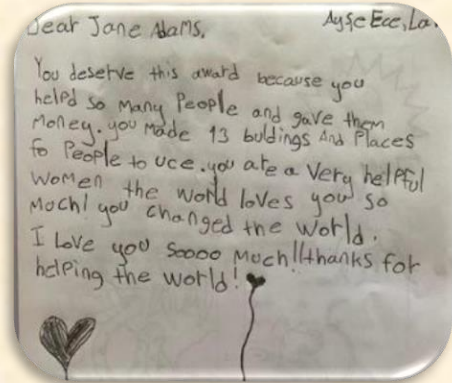 Dear Jane Adams, Ayşe Ece, La.
You deserve this award because you
helpd so many People and gave them
Money. you Made 13 buldings And Places
fo People to uce. you are a very helpful
women the world loves you so
Moch! you changed the world.
I Love you soooo Much!! thanks for
helping the world!